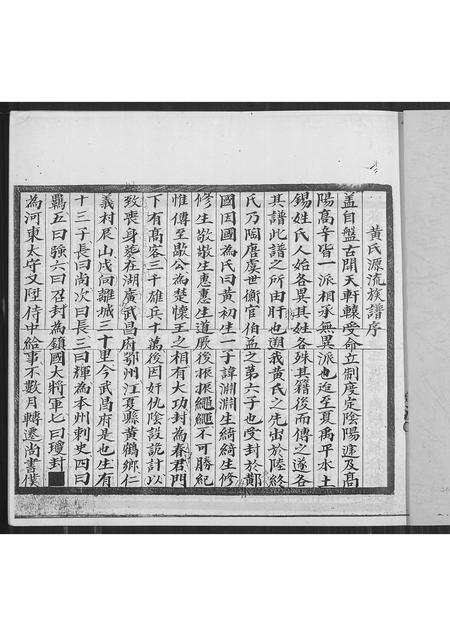 黃氏源流族譜序
盖自盤古開天軒轅受命立制度定陰陽迨及高
陽高辛皆一派相承無異派也迨至夏禹平水土
錫姓氏人始各異其姓各殊其籍後而傳之遂各
其譜此譜之所由肝也遡我黃氏之先出於陸終
氏乃陶唐虞世衡官伯益之第六子也受封於鄭
國因國為氏曰黃初生一子諱淵淵生綺綺生修
修生敬敬生惠惠生道厥後振振繩繩不可勝紀
惟傳至歇公為楚懷王之相有大功封為春君門
下有髙客三千雄兵十萬後因奸仇陰設詭計以
致喪身塟在湖廣武昌府鄂州江夏縣黃鶴鄉仁
義村辰山戌向離城三十里今武昌府是也生有
十三子長曰尚次曰長三曰輝為本州刺史四曰
五曰強六曰召封為鎮國大將軍七曰瓊封
為河東太守又陞侍中給事不數月轉遷尚書僕